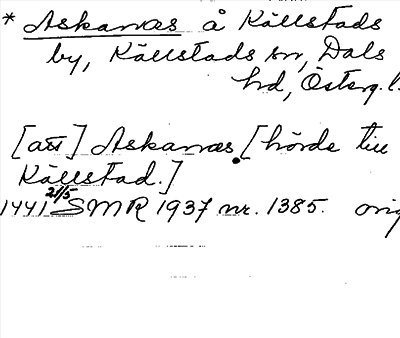 * Askanæs å Källstads
by, Källstads sn, Dals
hd, Österg. l.
[att] Askanæs [hörde till
Källstad.]
21/5
1441 SMR 1937 nr. 1385. orig